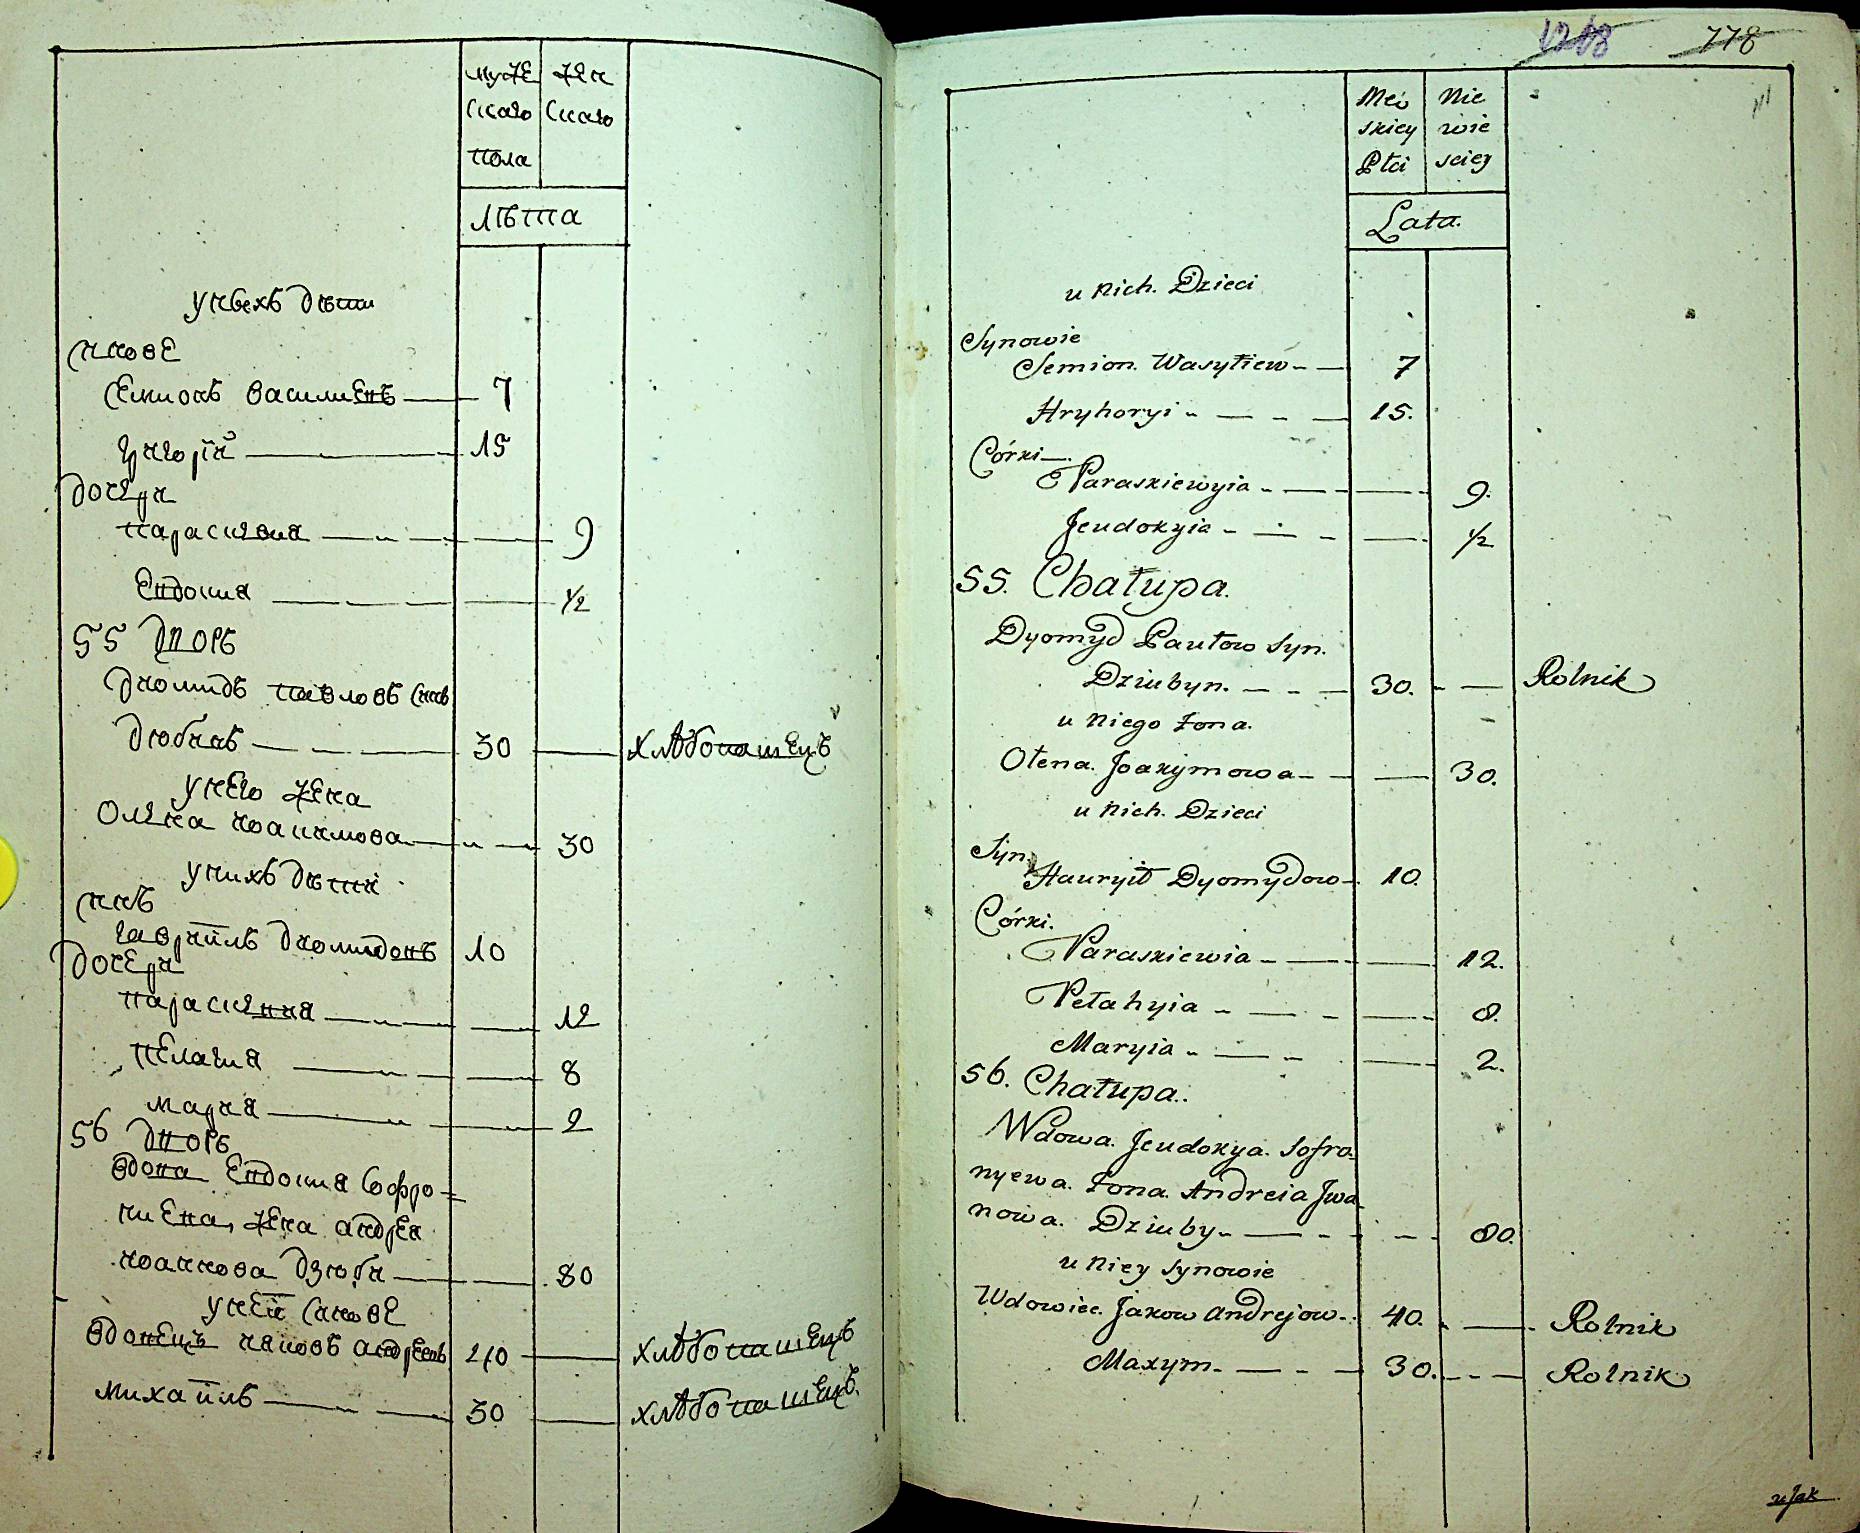 муже жен
скаго скаго
пола
лѣта
у нѣхъ дѣти
сынове
Семионъ василиевъ 7
григорій 15
дочери
параскевиа 9
Евдокия 1/2
55 дворъ
диомидъ павловъ сынъ
дюбинъ 30 хлѣбопашецъ
у него жена
Олена иоакимова 30
у нихъ дѣти
сынъ
гавриилъ диомидовъ 10
дочери
параскевия 12
пелагия 8
мария 2
56 дворъ
вдова Евдокия Софро=
ниева, жена андреа
иоаннова дзюби 80
у неи синове
вдовецъ иаковъ андреевъ 40 хлѣбопашецъ
михаилъ 30 хлѣбопашецъ
1218 778
Męs Nie
skiey wie
Płci sciey
Lata.
u nich. Dzieci
Synowie
Semion. Wasyliew - — 7
Hryhoryi - — - — 15.
Córki —.
Paraskiewyia - — - — 9.
Jeudokyia - — - — 1/2
55. Chałupa.
Dyomyd Pautow syn.
Dziubyn. — - — 30. - — Rolnik
u niego żona.
Ołena. Joakymowa - — — 30.
u nich. Dzieci
Syn.
Hauryił Dyomydow - 10.
Córki.
Paraskiewia - — - — 12.
Pełahyia - — - — 8.
Maryia - — - — 2.
56. Chałupa.
Wdowa. Jeudokya. Sofro-
nyewa. żona. Andreia Jwa
nowa. Dziuby - — - - — 80.
u niey synowie
Wdowiec. Jakow Andrejow - 40. - — Rolnik
Maxym. — - — 30. - - — Rolnik
u Jak